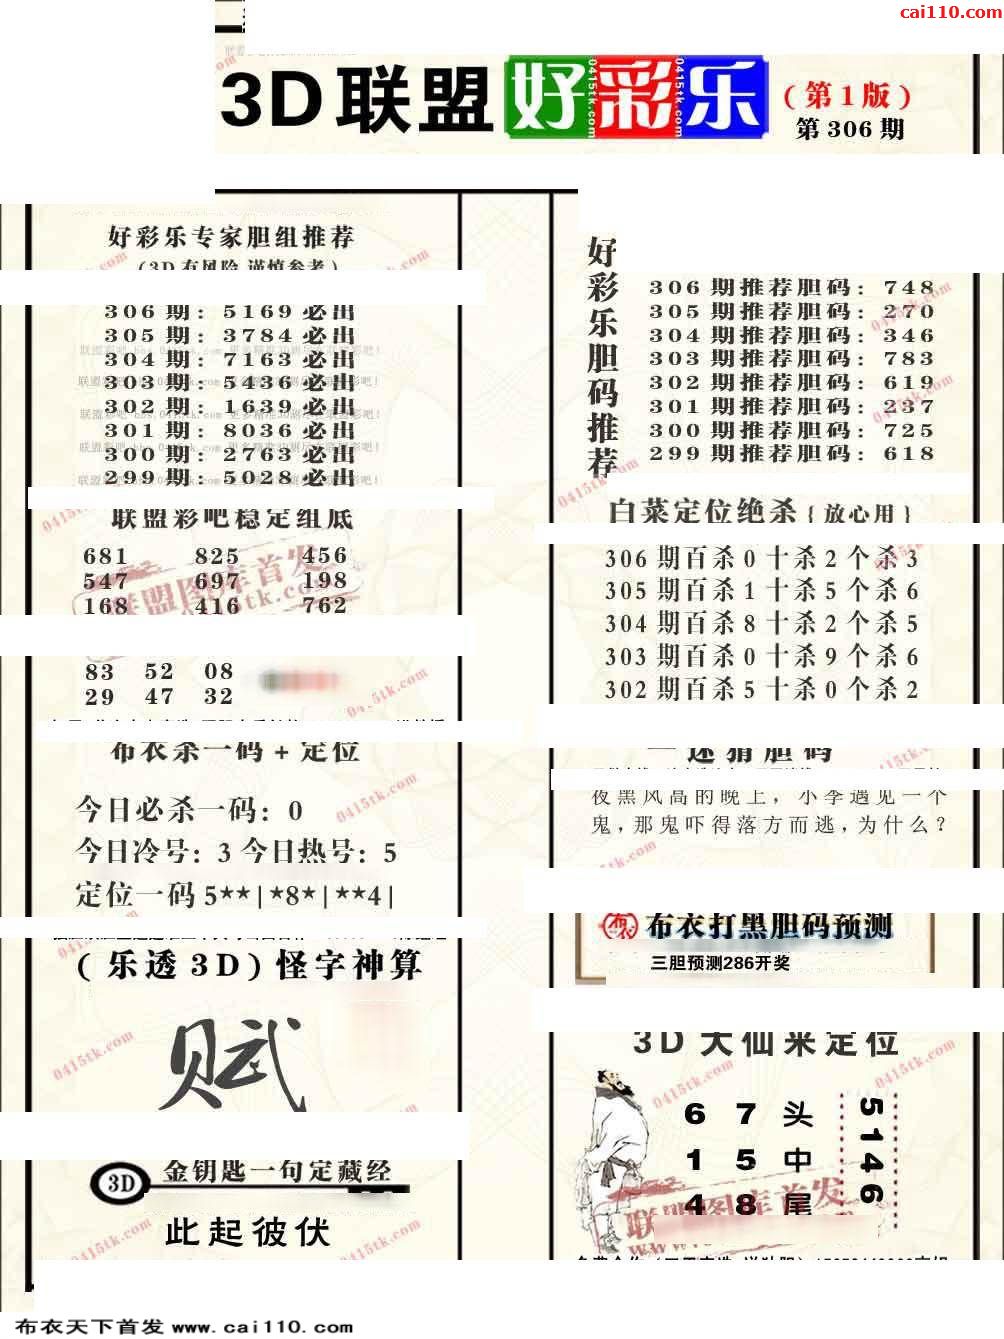 cai110.com
3D联盟好彩乐
(第1版)
第306期
好彩乐专家胆组推荐
(3D有风险 谨慎参考)
306期: 5169必出
305期: 3784必出
304期: 7163必出
303期: 5436必出
302期: 1639必出
301期: 8036必出
300期: 2763必出
299期: 5028必出
联盟彩吧稳定组底
681 825 456
547 697 198
168 416 762
83 52 08
29 47 32
布衣杀一码+定位
今日必杀一码: 0
今日冷号: 3 今日热号: 5
定位一码 5**|*8*|**4|
(乐透3D)怪字神算
赋
3D
金钥匙一句定藏经
此起彼伏
好彩乐胆码推荐
306期推荐胆码: 748
305期推荐胆码: 270
304期推荐胆码: 346
303期推荐胆码: 783
302期推荐胆码: 619
301期推荐胆码: 237
300期推荐胆码: 725
299期推荐胆码: 618
白菜定位绝杀{放心用}
306期百杀0十杀2个杀3
305期百杀1十杀5个杀6
304期百杀8十杀2个杀5
303期百杀0十杀9个杀6
302期百杀5十杀0个杀2
一迷猜胆码
夜黑风高的晚上, 小李遇见一个
鬼,那鬼吓得落方而逃,为什么?
布衣
布衣打黑胆码预测
三胆预测286开奖
3D大仙来定位
6 7 头
1 5 中
4 8 尾
5146
联盟图库首发
0415tk.com
布衣天下首发 www.cai110.com